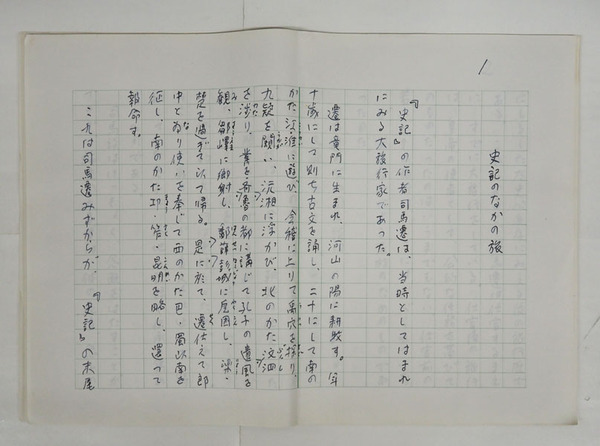 1
史記のなかの旅
『史記』の作者司馬遷は、当時としてはまれ
にみる大旅行家であった。
遷は竜門に生まれ、河山の陽に耕牧す。年
十歳にして則ち古文を誦し、二十にして南の
かた江淮に遊び、会稽に上りて禹穴を探り、
九疑を闚い、沅湘に浮かび、北のかた汶泗
を渉り、業を斉魯の都に講じて孔子の遺風を
観、鄒嶧に郷射し、鄱薛彭城に戹困し、梁・
楚を過ぎて以て帰る。是に於て、遷仕えて郎
中と為り使いを奉じて西のかた巴・蜀以南を
征し、南のかた邛・笮・昆明を略し、還って
報命す。
これは司馬遷みずからが、『史記』の末尾